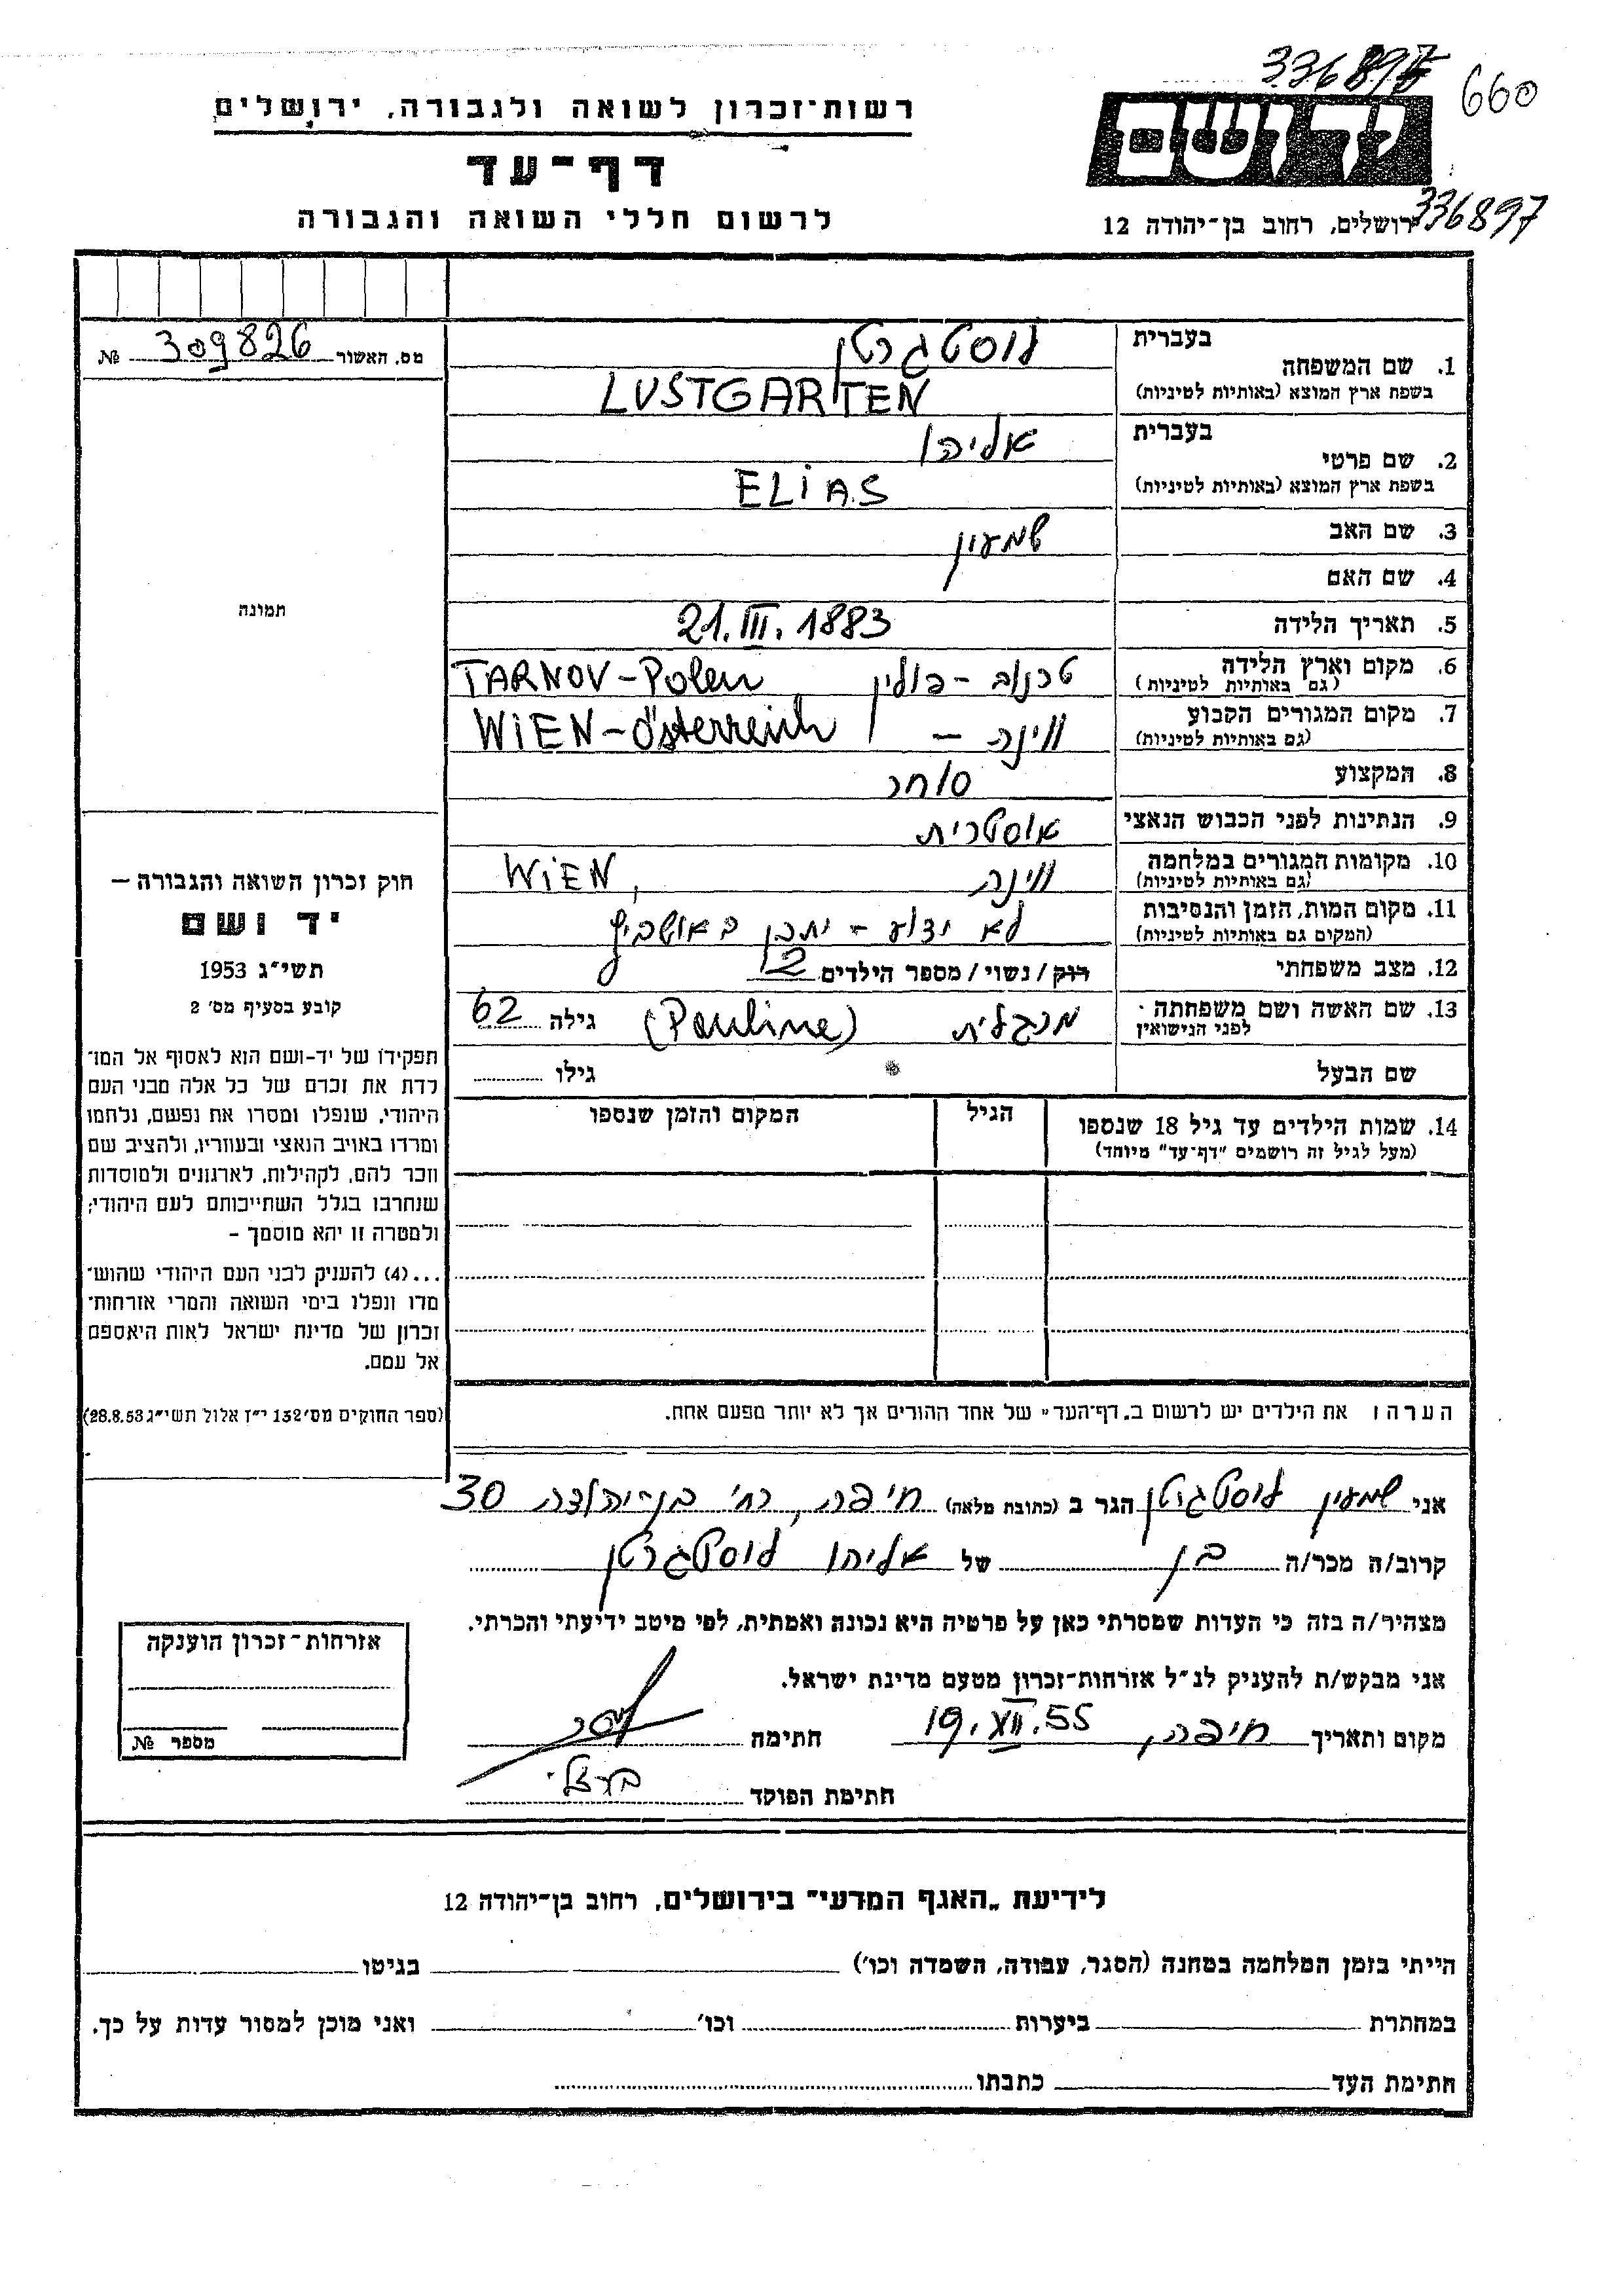 336898
660
רשות־זכרון לשואה ולגבורה, ירושלים
דף־עד
לרשום חללי השואה והגבורה
יד ושם
ירושלים, רחוב בן־יהודה 12
336897
מס. האשור 309826 №
תמונה
1. שם המשפחה בעברית לוסטגרטן
בשפת ארץ המוצא (באותיות לטיניות) LUSTGARTEN
2. שם פרטי בעברית אליהו
בשפת ארץ המוצא (באותיות לטיניות) ELiAS
3. שם האב שמעון
4. שם האם
5. תאריך הלידה 21.III.1883
6. מקום וארץ הלידה (גם באותיות לטיניות) טרנוב - פולין TARNOV - Polen
7. מקום המגורים הקבוע (גם באותיות לטיניות) ווינה - WiEN - Österreich
8. המקצוע סוחר
9. הנתינות לפני הכבוש הנאצי אוסטרית
10. מקומות המגורים במלחמה (גם באותיות לטיניות) ווינה, WiEN
11. מקום המות, הזמן והנסיבות (המקום גם באותיות לטיניות) לא ידוע - יתכן באושביץ
12. מצב משפחתי רוק / נשוי / מספר הילדים 2
13. שם האשה ושם משפחתה לפני הנישואין (Pauline) גילה 62
שם הבעל גילו
14. שמות הילדים עד גיל 18 שנספו הגיל המקום והזמן שנספו
(מעל לגיל זה רושמים "דף־עד" מיוחד)
חוק זכרון השואה והגבורה —
יד ושם
תשי״ג 1953
קובע בסעיף מס׳ 2
תפקידו של יד-ושם הוא לאסוף אל המו־
לדת את זכרם של כל אלה מבני העם
היהודי, שנפלו ומסרו את נפשם, נלחמו
ומרדו באויב הנאצי ובעוזריו, ולהציב שם
וזכר להם, לקהילות, לארגונים ולמוסדות
שנחרבו בגלל השתייכותם לעם היהודי;
ולמטרה זו יהא מוסמך -
...(4) להעניק לבני העם היהודי שהוש־
מדו ונפלו בימי השואה והמרי אזרחות־
זכרון של מדינת ישראל לאות היאספם
אל עמם.
(ספר החוקים מס׳ 132 י״ז אלול תשי״ג 28.8.53)
הערה: את הילדים יש לרשום ב„דף־העד״ של אחד ההורים אך לא יותר מפעם אחת.
אני שמעון לוסטגרטן הגר ב (כתובת מלאה) חיפה, רח׳ בן-יהודה 30
קרוב/ה מכר/ה בן של אליהו לוסטגרטן
מצהיר/ה בזה כי העדות שמסרתי כאן על פרטיה היא נכונה ואמתית, לפי מיטב ידיעתי והכרתי.
אני מבקש/ת להעניק לנ״ל אזרחות־זכרון מטעם מדינת ישראל.
מקום ותאריך חיפה, 19.XII.55 חתימה
חתימת הפוקד
אזרחות־זכרון הוענקה
מספר №
לידיעת „האגף המדעי״ בירושלים, רחוב בן־יהודה 12
הייתי בזמן המלחמה במחנה (הסגר, עבודה, השמדה וכו׳) בגיטו
במחתרת ביערות וכו׳ ואני מוכן למסור עדות על כך.
חתימת העד כתבתו